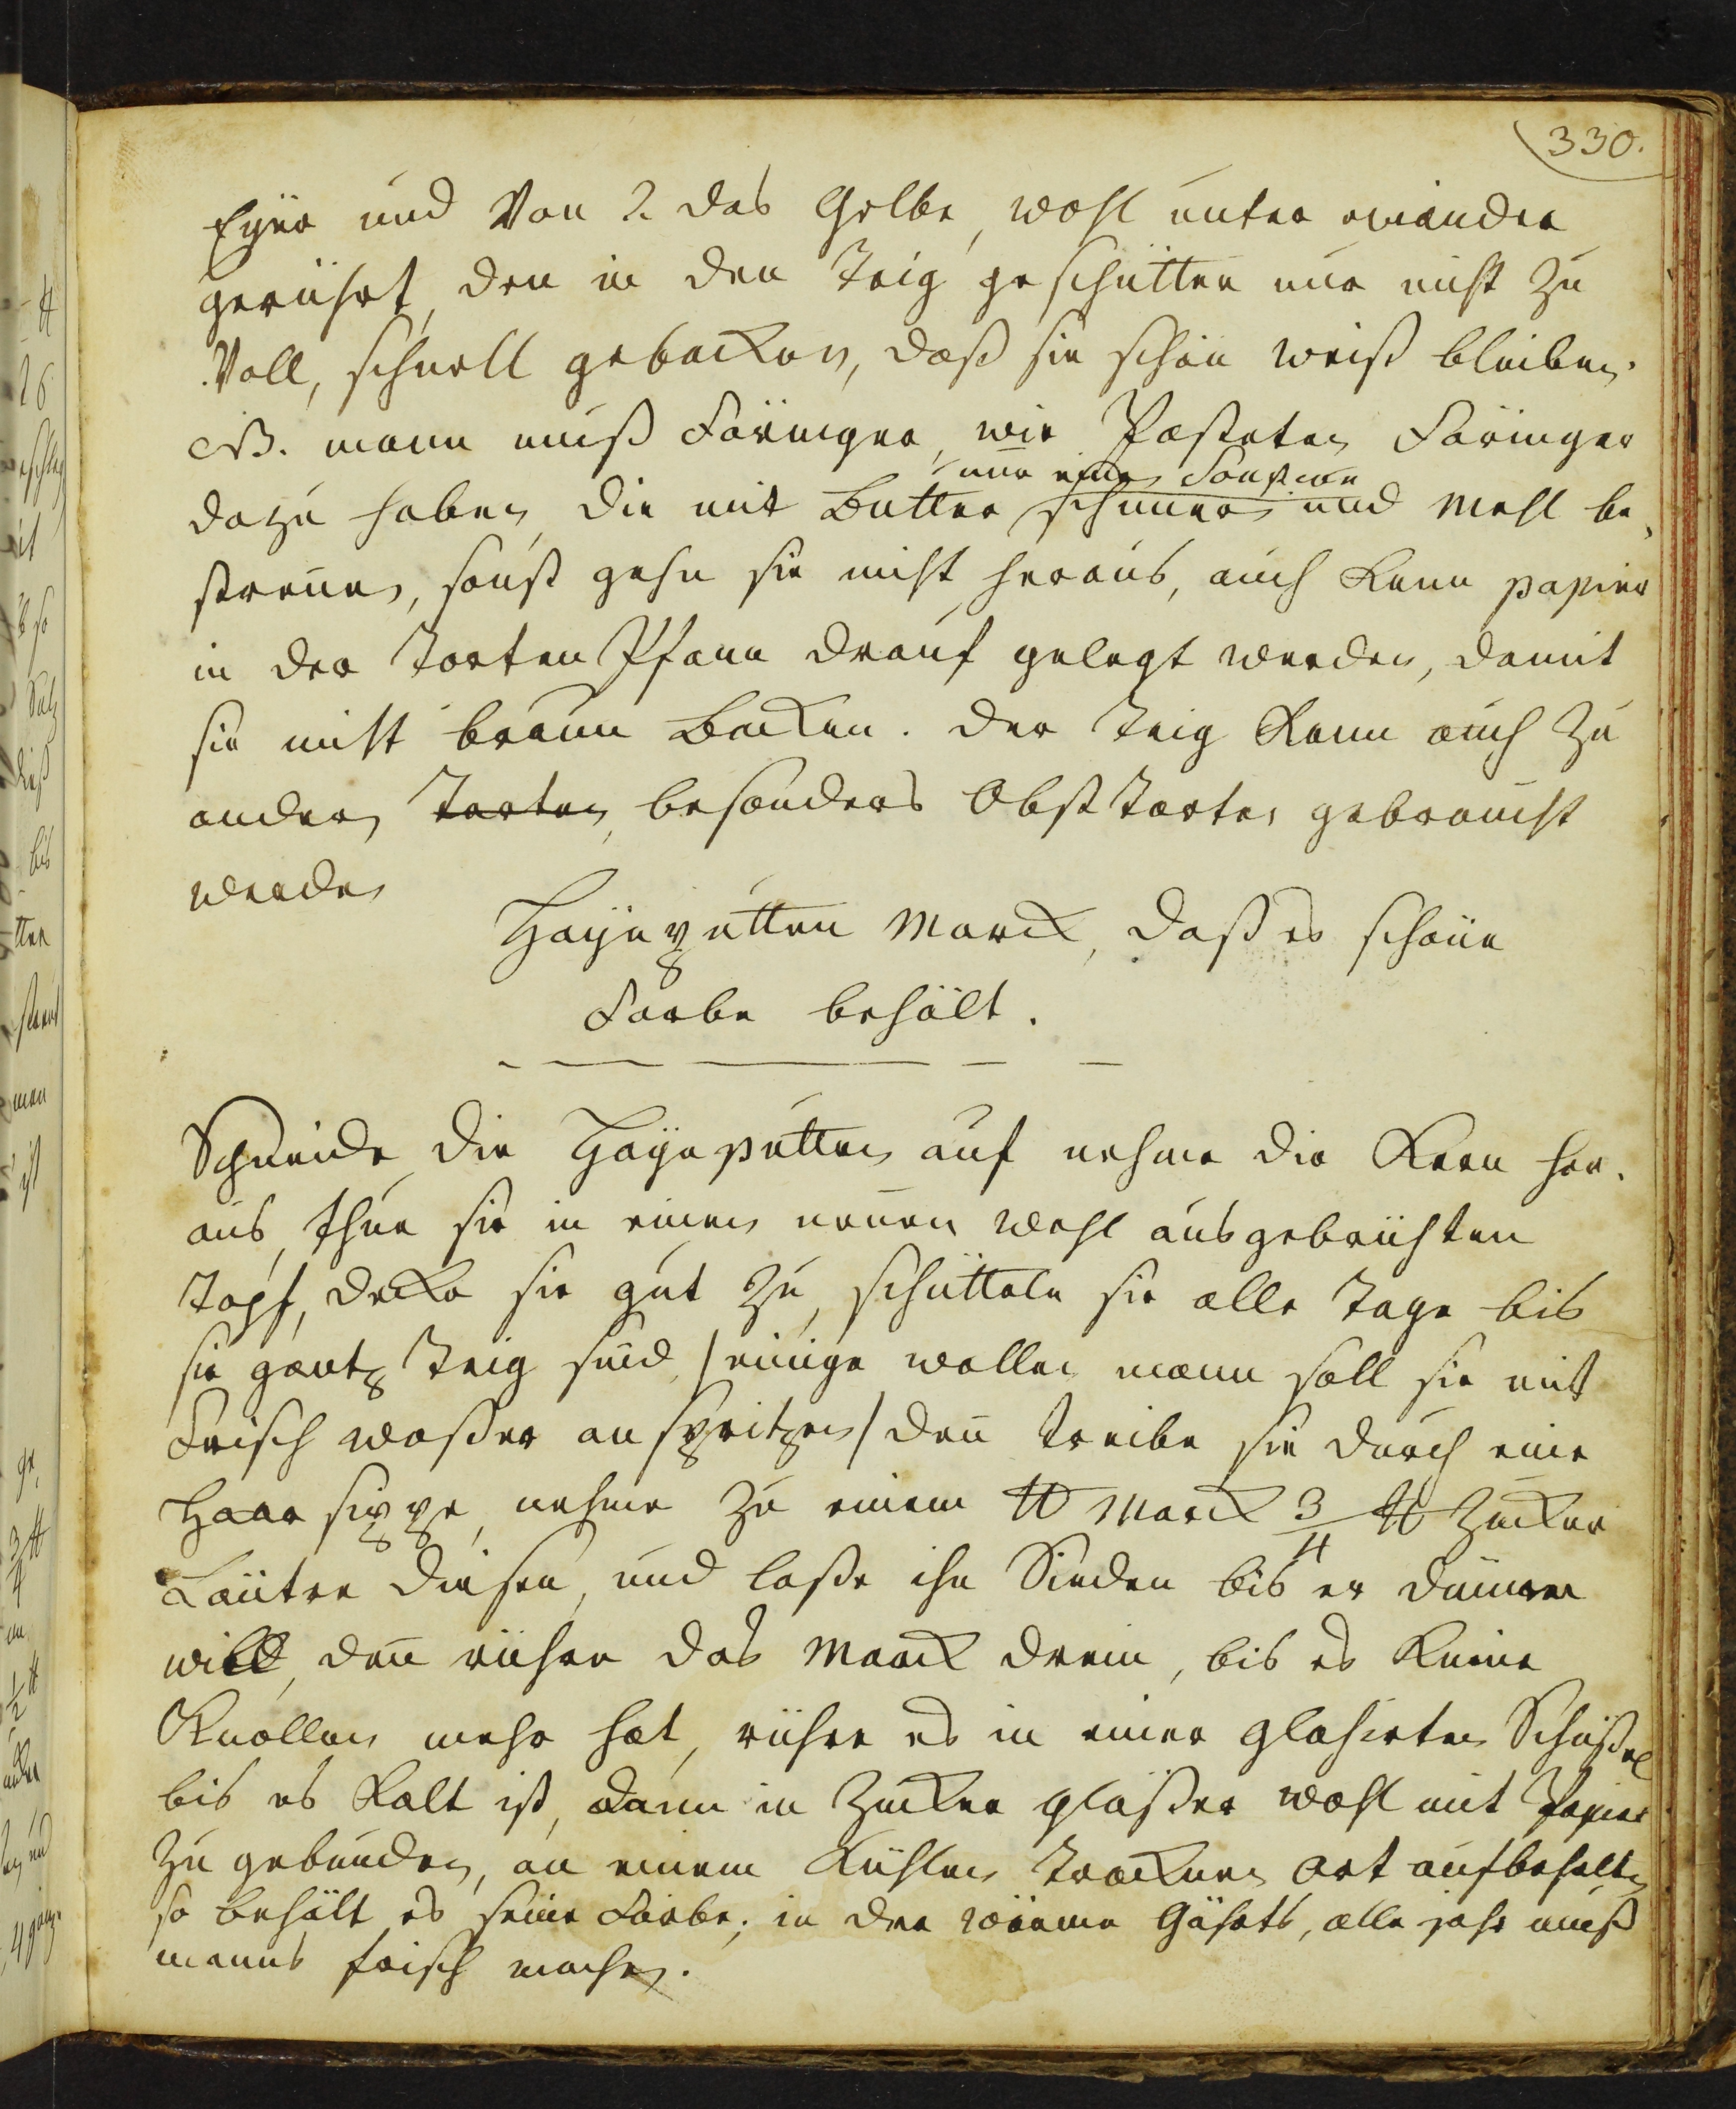 330.
Eyer und Von 2. das Gelbe, wohl unter einander
gerührt, den in den Teig geschütten nur nicht zu
Voll, schnell gebacken, daß sie schön weiß bleiben.
NB. mann muß Föringer, wie Pasteten Föringer
nur eine
dazu haben, die mit Butter schmier und Mehl be,
streuen, sonst gehn sie nicht heraus, auch kann papier
in der Torten Pfann drauf gelegt werden, damit
sie nicht braun Backen. der Teig kann auch zu
andern Torten, besonders Obst Torten gebraucht
werden
Hayeputten Marck, daß es schöne
Farbe behält.
Schneide die Hayeputten auf nehme die Kern her,
aus, thue sie in einen neuen wohl ausgebrühten
Topf, decke sie gut zu, schütteln sie alle Tage bis
sie gantz Teig sind, /einige wollen mann soll sie mit
Frisch waßer anspritzen/ den treibe sie durch eine
Haar sippe, nehme zu einem ℔ Marck 3/4 ℔ Zucker
Läutre diesen, und laße ihn Sieden bis er
will, den rühre das Marck drein, bis es keine
Knollen mehr hat, rühre es in einer glasirten Schüßel
bis es Kalt ist, dann in Zucker gläßer wohl mit Papier
zu gebunden, an einem Kühlen trocknen ort aufbehalten
so behält es seine Farbe, in der wärme Gährts, alle jahr muß
manns frisch machen.